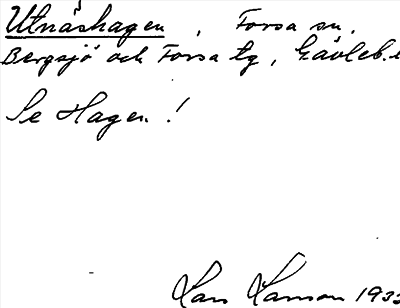 Utnäshagen, Forsa sn,
Bergsjö och Forsa tg, Gävleb.
Se Hagen!
Lars Larsson